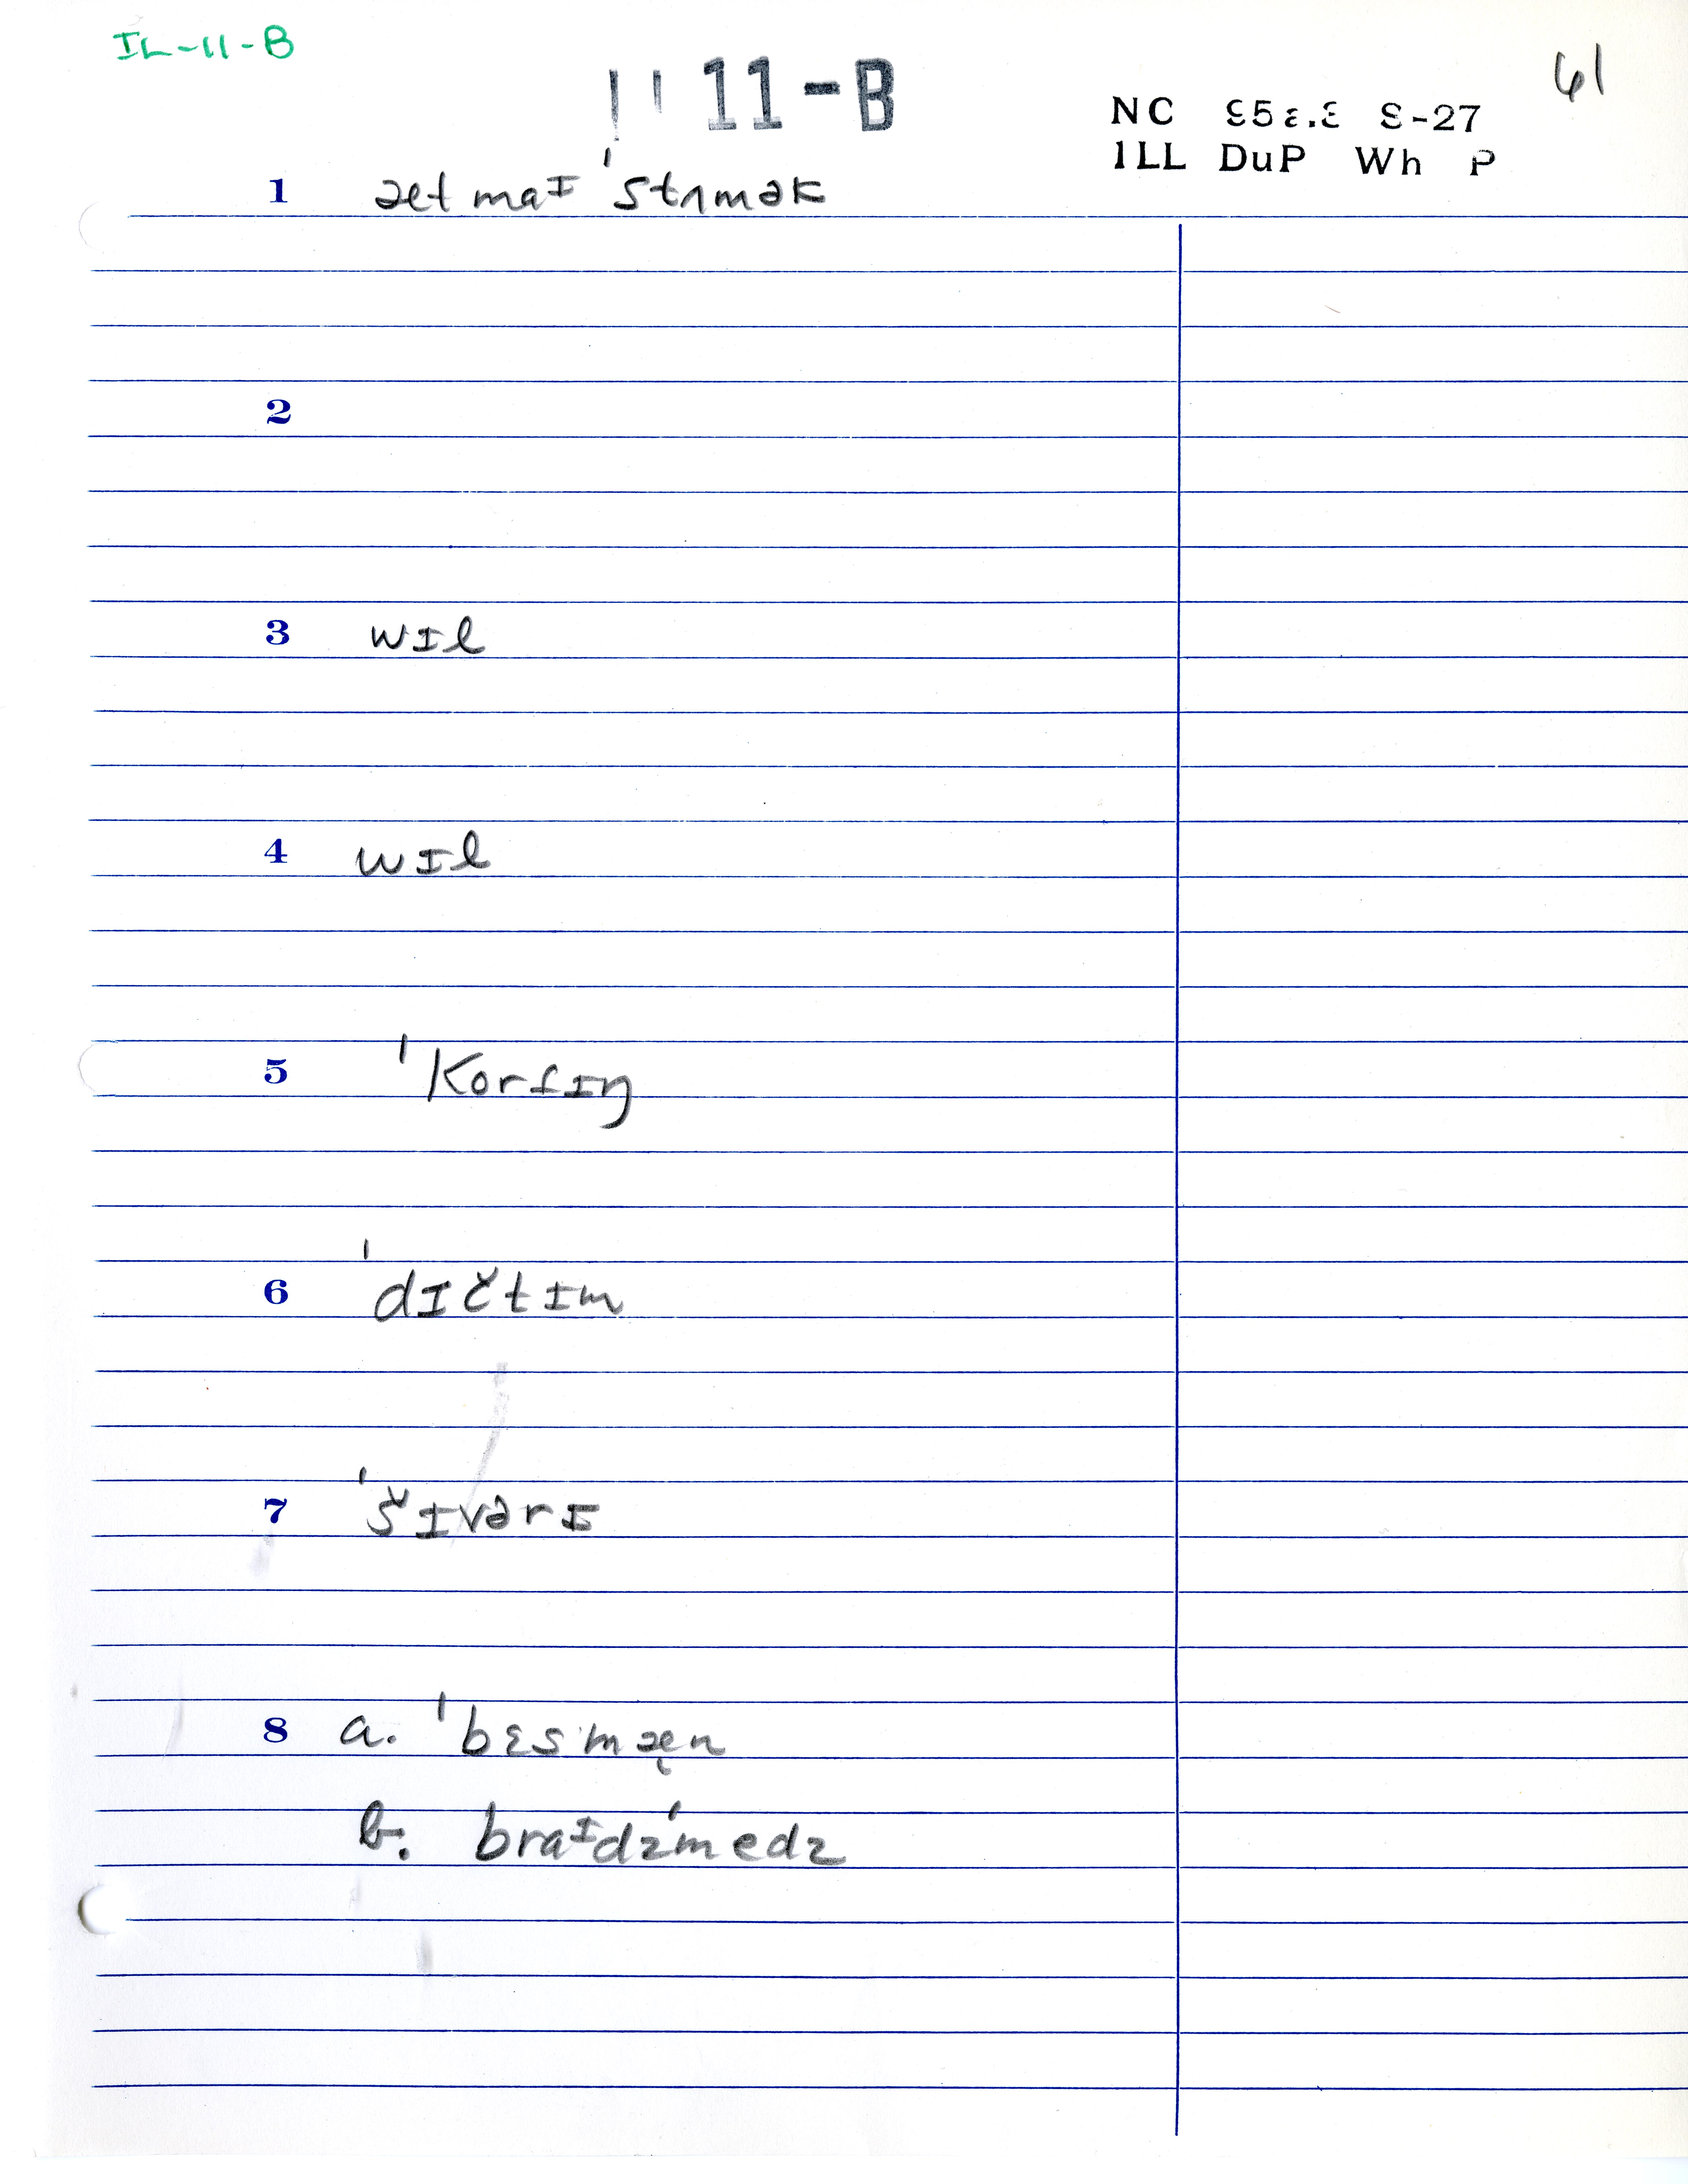 IL-11-B
11-B
61
NC S-27
ILL DuP Wh P
1 æt maɪ ˈstʌmək
2
3 wɪl
4 wɪl
5 ˈkorfɪŋ
6 ˈdɪčtɪm
7 ˈšɪvərɪ
8 a. ˈbɛsmæn
b. braɪdzˈmedz